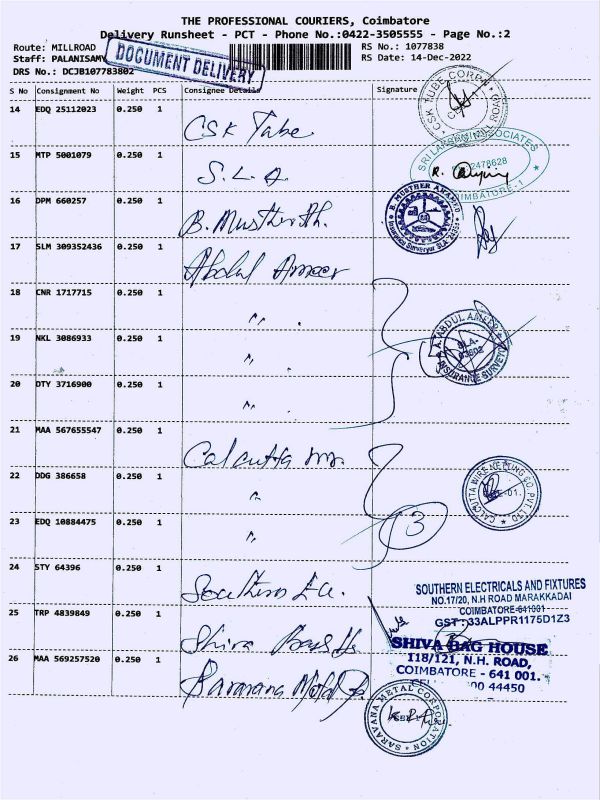 THE PROFESSIONAL COURIERS, Coimbatore
Delivery Runsheet - PCT - Phone No.:0422-3505555 - Page No.:2
Route: MILLROAD
Staff: PALANISAMY
DRS No.: DCJB107783802
DOCUMENT DELIVERY
RS No.: 1077838
RS Date: 14-Dec-2022
S No Consignment No Weight PCS Consignee Details Signature
14 EDQ 25112023 0.250 1 CSK Tube
CSK TUBE CORPN
15 MTP 5001079 0.250 1 S.L.A.
SRI LAKSHMI ASSOCIATES
2478628
COIMBATORE-1
16 DPM 660257 0.250 1 B. Musther Ah.
B. MUSTHER AHAMED
Insurance Surveyor SLA
17 SLM 309352436 0.250 1 Abdul Ameer
18 CNR 1717715 0.250 1 "
A. ABDUL AMEER
SLA-
INSURANCE SURVEYOR
19 NKL 3086933 0.250 1 "
20 DTY 3716900 0.250 1 "
21 MAA 567655547 0.250 1 Calcutta
22 DDG 386658 0.250 1 "
CALCUTTA WIRE NETTING CO. PVT. LTD
23 EDQ 10884475 0.250 1 "
3
24 STY 64396 0.250 1 Southern
SOUTHERN ELECTRICALS AND FIXTURES
NO.17/20, N.H ROAD MARAKKADAI
COIMBATORE-641001
GST:33ALPPR1175D1Z3
25 TRP 4839849 0.250 1 Shiva Bag H
SHIVA BAG HOUSE
118/121, N.H. ROAD,
COIMBATORE - 641 001.
44450
26 MAA 569257520 0.250 1 Saravana Metal
SARAVANA METAL CORPORATION